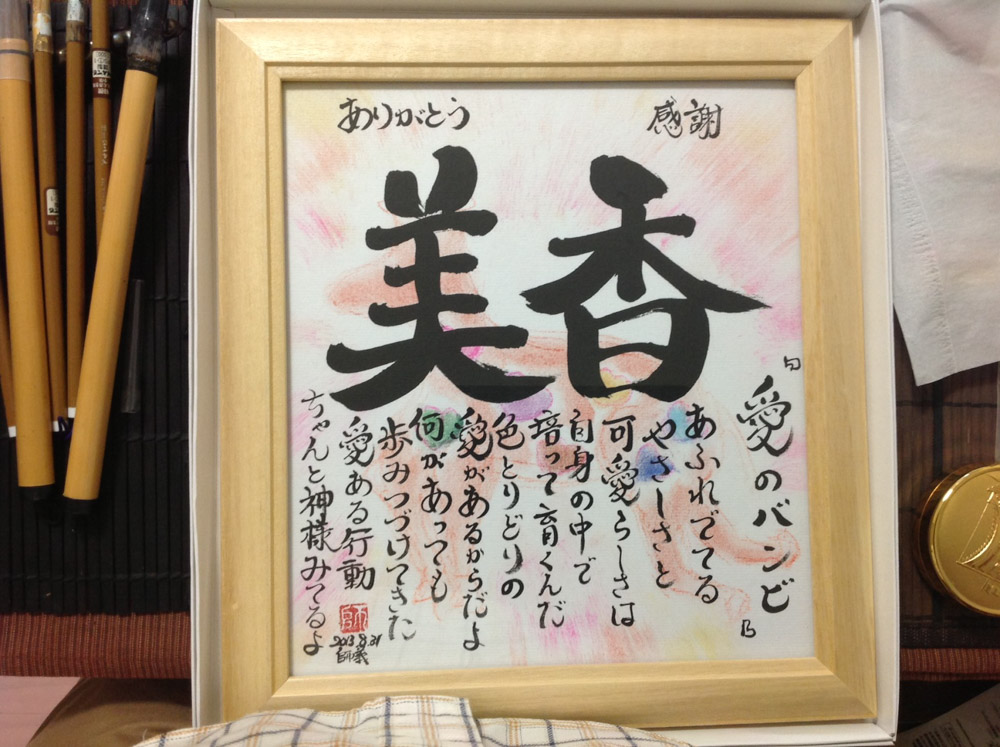 感謝
ありがとう
美香
「愛のバンビ」
あふれでてる
やさしさと
可愛らしさは
自身の中で
培って育くんだ
色とりどりの
愛があるからだよ
何があっても
歩みつづけてきた
愛ある行動
ちゃんと神様みてるよ
2013.8.31